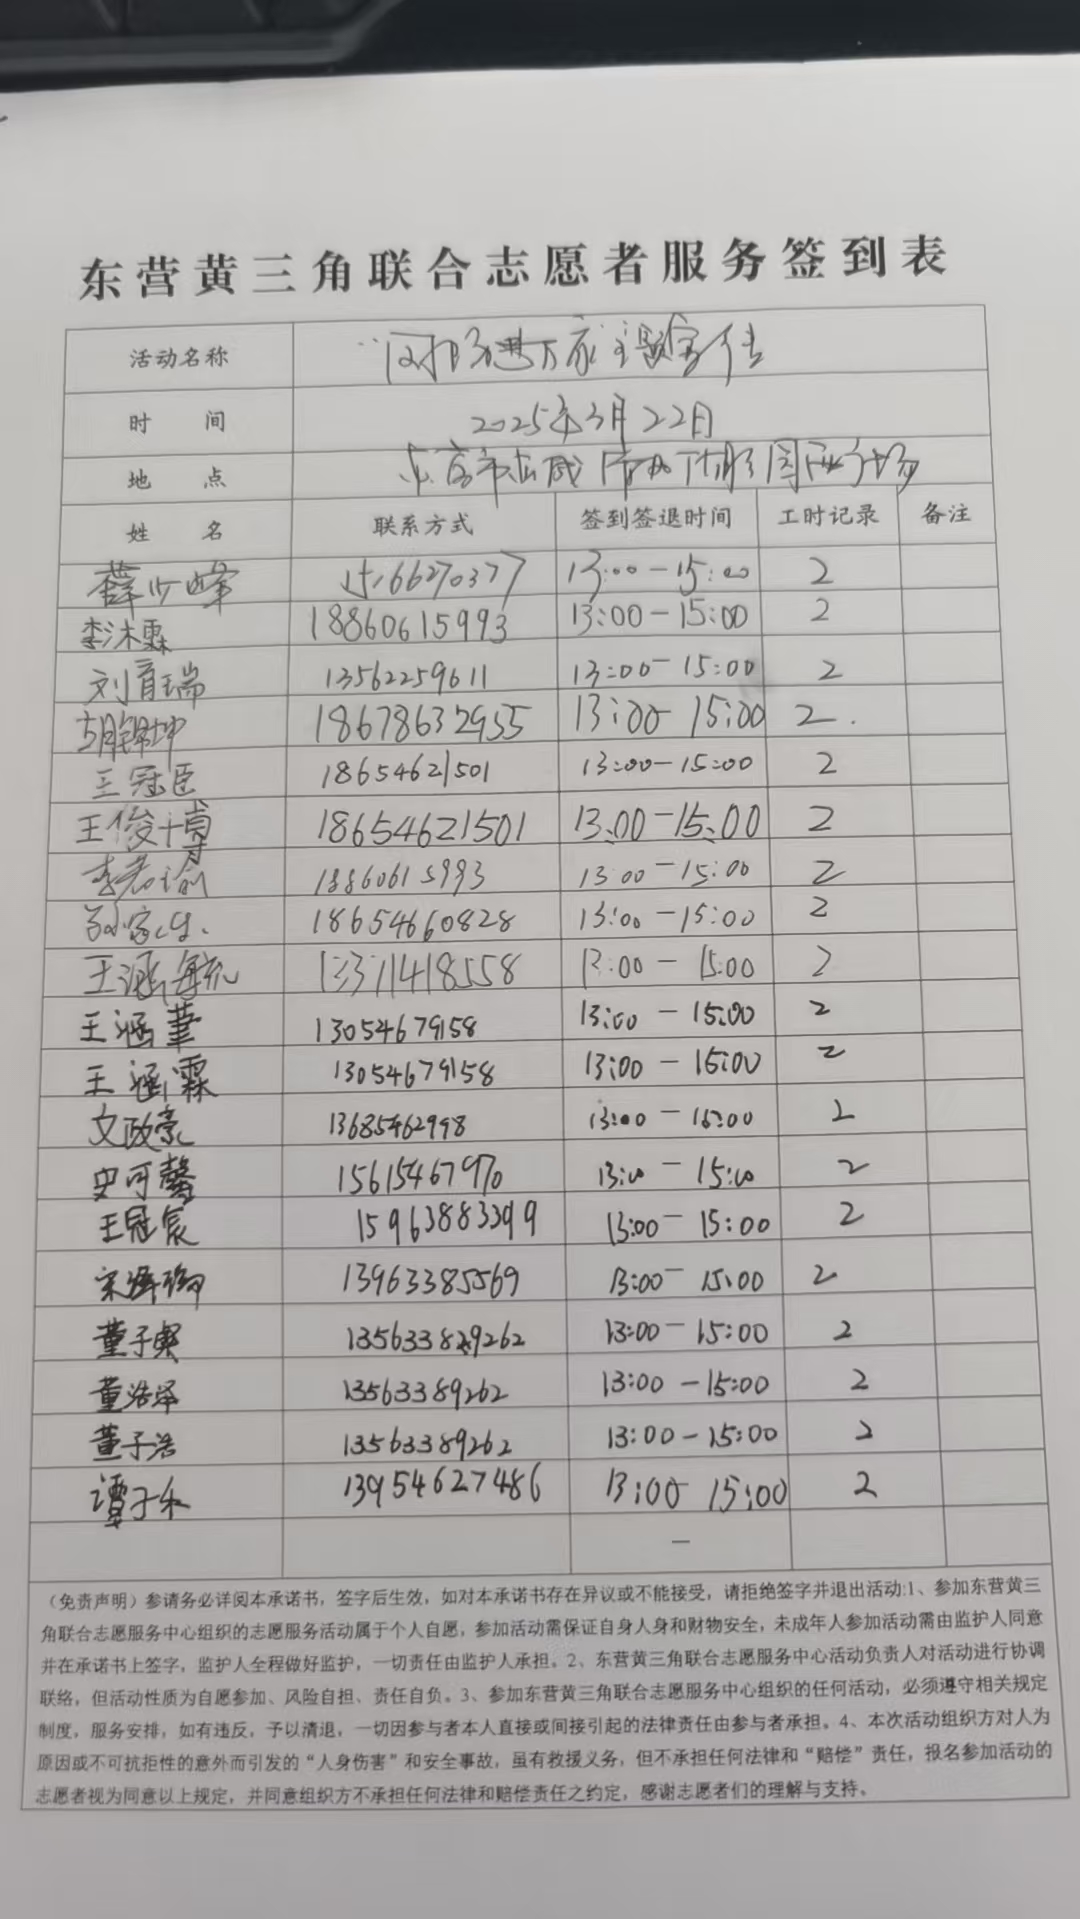 东营黄三角联合志愿者服务签到表
活动名称 进万家主题宣传
时 间 2025年3月22日
地 点 东营市
姓 名 联系方式 签到签退时间 工时记录 备注
薛少峰 13:00-15:00 2
李沐霖 18860615993 13:00-15:00 2
刘育瑞 13562259611 13:00-15:00 2
胡锦坤 18678632955 13:00 15:00 2.
王冠臣 18654621501 13:00-15:00 2
王俊博 18654621501 13:00-15:00 2
李君瑜 18860615993 13:00-15:00 2
18654660828 13:00-15:00 2
王涵毓 13371418558 13:00-15:00 2
王涵菶 13054679158 13:00-15:00 2
王涵霖 13054679158 13:00-15:00 2
文政豪 13685462998 13:00-15:00 2
史可馨 15615467970 13:00-15:00 2
王冠宸 15963883399 13:00-15:00 2
宋 13963385569 13:00-15:00 2
董子奥 13:00-15:00 2
董浩泽 13563389262 13:00-15:00 2
董子浩 13563389262 13:00-15:00 2
谭子禾 13954627486 13:00 15:00 2
—
（免责声明）参请务必详阅本承诺书，签字后生效，如对本承诺书存在异议或不能接受，请拒绝签字并退出活动:1、参加东营黄三
角联合志愿服务中心组织的志愿服务活动属于个人自愿，参加活动需保证自身人身和财物安全，未成年人参加活动需由监护人同意
并在承诺书上签字，监护人全程做好监护，一切责任由监护人承担。2、东营黄三角联合志愿服务中心活动负责人对活动进行协调
联络，但活动性质为自愿参加、风险自担、责任自负。3、参加东营黄三角联合志愿服务中心组织的任何活动，必须遵守相关规定
制度，服务安排，如有违反，予以清退，一切因参与者本人直接或间接引起的法律责任由参与者承担。4、本次活动组织方对人为
原因或不可抗拒性的意外而引发的“人身伤害”和安全事故，虽有救援义务，但不承担任何法律和“赔偿”责任，报名参加活动的
志愿者视为同意以上规定，并同意组织方不承担任何法律和赔偿责任之约定，感谢志愿者们的理解与支持。